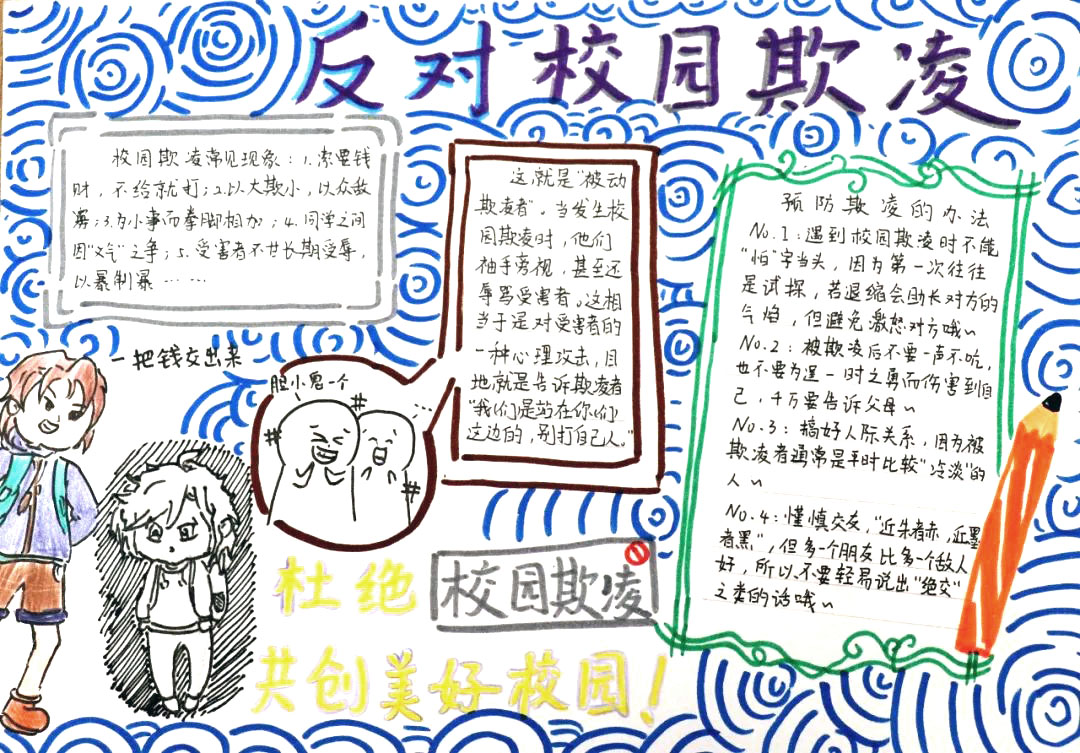 反对校园欺凌
校园欺凌常见现象：1.索要钱
财，不给就打；2.以大欺小，以众敌
寡；3.为小事而拳脚相加；4.同学之间
因“义气”之争；5.受害者不甘长期受辱，
以暴制暴……
一把钱交出来
胆小鬼一个
这就是“被动
欺凌者”。当发生校
园欺凌时，他们
袖手旁观，甚至还
辱骂受害者。这相
当于是对受害者的
一种心理攻击，目
地就是告诉欺凌者
“我们是站在你们
这边的，别打自己人。”
预防欺凌的办法
No.1：遇到校园欺凌时不能
“怕”字当头，因为第一次往往
是试探，若退缩会助长对方的
气焰，但避免激怒对方哦~
No.2：被欺凌后不要一声不吭，
也不要为逞一时之勇而伤害到自
己，千万要告诉父母~
No.3：搞好人际关系，因为被
欺凌者通常是平时比较“冷淡”的
人~
No.4：慎交友，“近朱者赤，近墨
者黑”，但多一个朋友比多一个敌人
好，所以、不要轻易说出“绝交”
之类的话哦~
杜绝校园欺凌
共创美好校园！